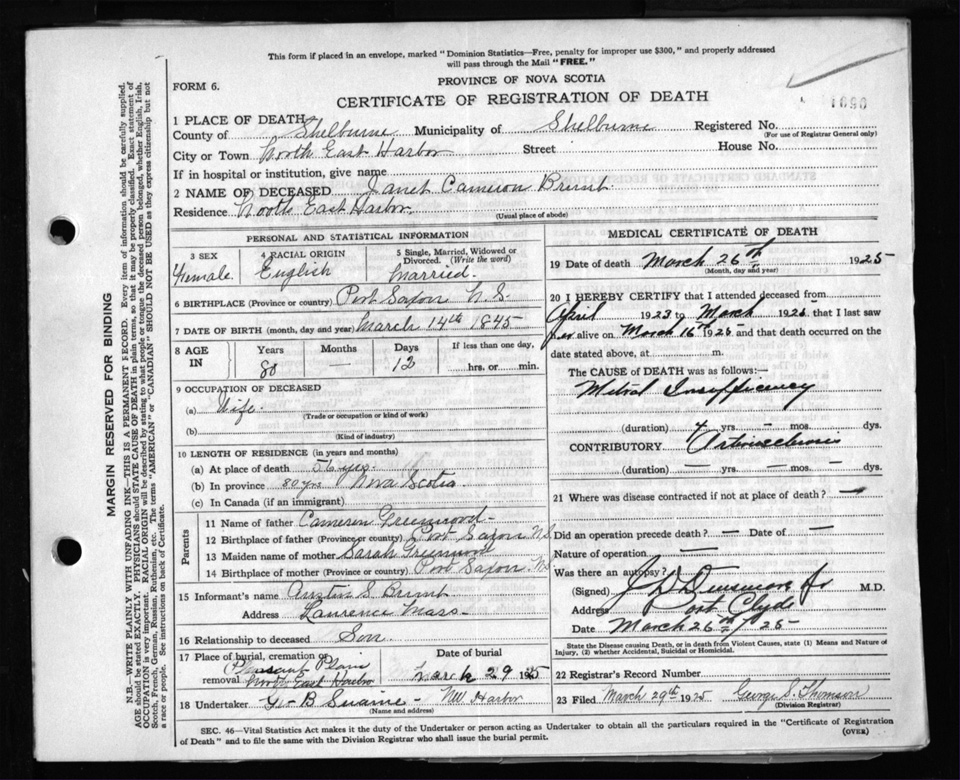 This form if placed in an envelope, marked "Dominion Statistics—Free, penalty for improper use $300," and properly addressed
will pass through the Mail "FREE."
FORM 6.
PROVINCE OF NOVA SCOTIA
CERTIFICATE OF REGISTRATION OF DEATH
1 PLACE OF DEATH
County of Shelburne Municipality of Shelburne Registered No.
(For use of Registrar General only)
City or Town North East Harbor Street House No.
If in hospital or institution, give name
2 NAME OF DECEASED Janet Cameron Brint
Residence North East Harbor
(Usual place of abode)
PERSONAL AND STATISTICAL INFORMATION
3 SEX Female
4 RACIAL ORIGIN English
5 Single, Married, Widowed or Divorced. (Write the word) Married.
6 BIRTHPLACE (Province or country) Port Saxon N.S.
7 DATE OF BIRTH (month, day and year) March 14th 1845
8 AGE IN Years Months Days If less than one day,
80 — 12 hrs. or min.
9 OCCUPATION OF DECEASED
(a) Wife
(Trade or occupation or kind of work)
(b)
(Kind of industry)
10 LENGTH OF RESIDENCE (in years and months)
(a) At place of death 56 yrs.
(b) In province 80 yrs Nova Scotia
(c) In Canada (if an immigrant)
Parents
11 Name of father Cameron Greenwood
12 Birthplace of father (Province or country) Port Saxon N.S.
13 Maiden name of mother Sarah Greenwood
14 Birthplace of mother (Province or country) Port Saxon N.S.
15 Informant's name S. Brint
Address Laurence Mass
16 Relationship to deceased Son
17 Place of burial, cremation or removal Pleasant Plain North East Harbor
Date of burial March 29 1925
18 Undertaker B Swaine - NW Harbor
(Name and address)
MEDICAL CERTIFICATE OF DEATH
19 Date of death March 26th 1925
(Month, day and year)
20 I HEREBY CERTIFY that I attended deceased from
April 1923 to March 1925, that I last saw
her alive on March 16th 1925 and that death occurred on the
date stated above, at m.
The CAUSE of DEATH was as follows:—
Mitral Insufficiency
(duration) yrs. — mos. — dys.
CONTRIBUTORY
(duration) — yrs. — mos. — dys.
21 Where was disease contracted if not at place of death? —
Did an operation precede death? — Date of —
Nature of operation —
Was there an autopsy?
(Signed) M.D.
Address Port Clyde
Date March 26th / 25
State the Disease causing Death, or in death from Violent Causes, state (1) Means and Nature of
Injury, (2) whether Accidental, Suicidal or Homicidal.
22 Registrar's Record Number
23 Filed March 29th 1925 George S. Thomson
(Division Registrar)
SEC. 46—Vital Statistics Act makes it the duty of the Undertaker or person acting as Undertaker to obtain all the particulars required in the "Certificate of Registration
of Death" and to file the same with the Division Registrar who shall issue the burial permit.
(OVER)
MARGIN RESERVED FOR BINDING
N.B.—WRITE PLAINLY WITH UNFADING INK—THIS IS A PERMANENT RECORD. Every item of information should be carefully supplied.
AGE should be stated EXACTLY. PHYSICIANS should STATE CAUSE OF DEATH in plain terms, so that it may be properly classified. Exact statement of
OCCUPATION is very important. RACIAL ORIGIN will be described by stating to what people or tongue the deceased person belonged, whether English, Irish,
Scotch, French, German, Russian, Ruthenian, etc. The terms "AMERICAN" or "CANADIAN" SHOULD NOT BE USED as they express citizenship but not
a race or people. See instructions on back of Certificate.